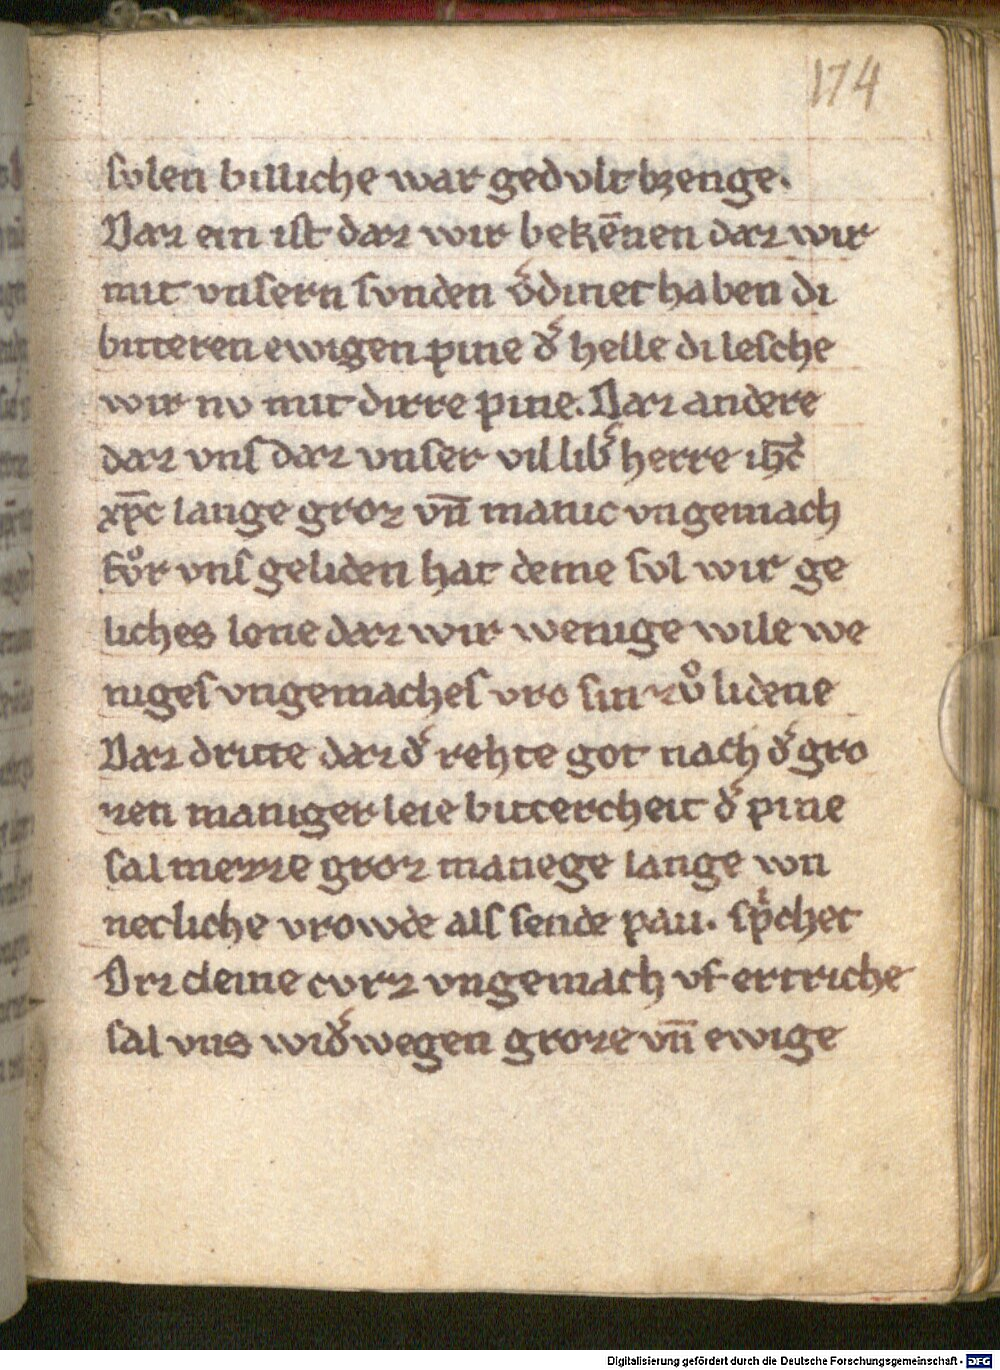 174
solen billiche war gedult brenge.
Daz ein ist daz wir bekēnen daz wir
mit vnsern sunden v͛dinet haben di
bitteren ewigen pine d͛ helle di lesche
wir nv mit dirre pine. Daz andere
daz vns daz vnser vil lib͛ herre ih̄c
xp̄c lange groz vn̄ manic vngemach
fvͦr vns geliden hat deme sol wir ge
liches lone daz wir wenige wile we
niges vngemaches vro sin zvͦ lidene
Daz dritte daz d͛ rehte got nach d͛ gro
zen maniger leie bittercheit d͛ pine
sal mezze groz manege lange wn
necliche vrowde als sende pau. sp͛chet
Diz cleine cvrz vngemach vf ertriche
sal vns wid͛wegen groze vn̄ ewige
Digitalisierung gefördert durch die Deutsche Forschungsgemeinschaft - DFG